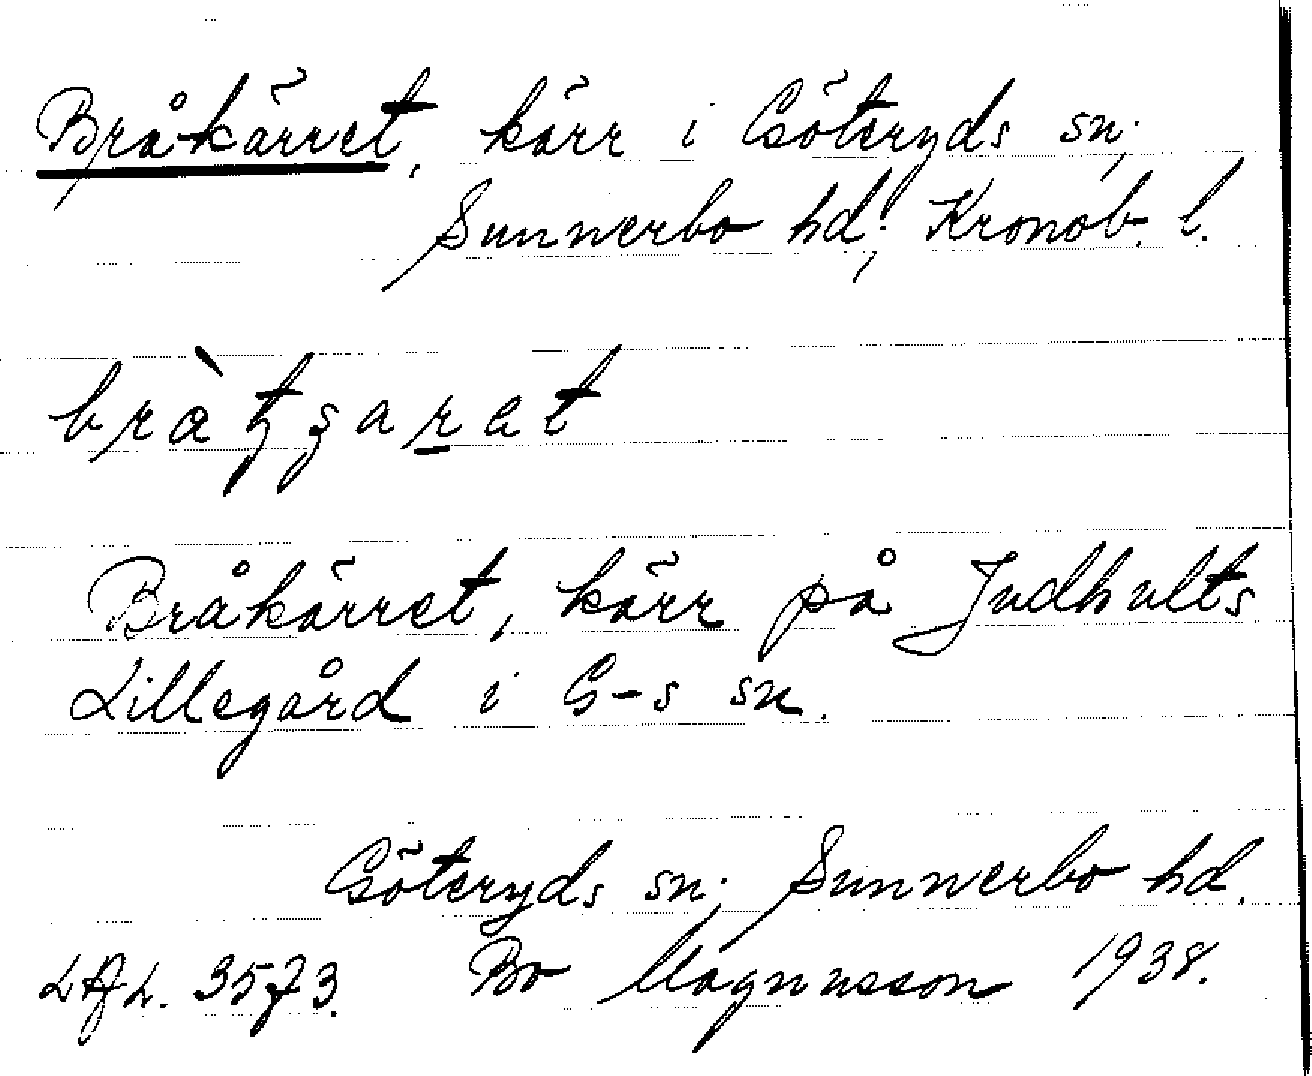 Bråkärret, kärr i Göteryds sn;
Sunnerbo hd; Kronob. l.
bràtʒarat
Bråkärret, kärr på Judhults
Lillegård i G-s sn.
Göteryds sn; Sunnerbo hd.
LAL. 3573. Bo Magnusson 1938.